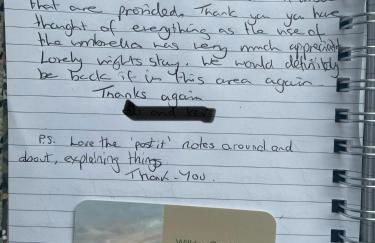 that are provided. Thank you you have
thought of everything as the use of
the umbrella was very much appreciated
Lovely nights stay. We would definitely
be back if in this area again.
Thanks again
P.S. Love the 'post it' notes around and
about, explaining things
Thank-You.